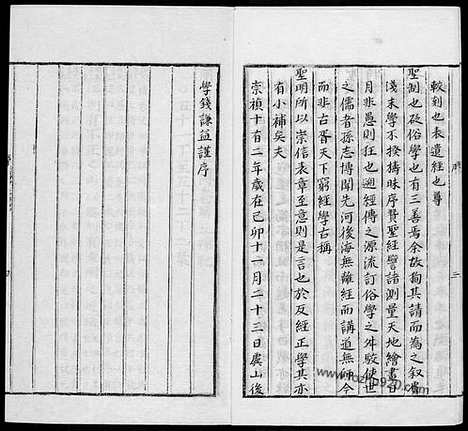 較刻也表遺經也尊
聖制也砭俗學也有三善焉余故狥其請而為之叙膚
淺末學不揆檮昧序贊聖經譬諸測量天地繪畫日
月非愚則狂也迺經傳之源流訂俗學之舛駁使世
之儒者孫志博聞先河後海無離經而講道無師今
而非古胥天下窮經學古稱
聖明所以崇信表章至意則是言也於反經正學其亦
有小補矣夫
崇禎十有二年歲在己卯十一月二十三日虞山後
學錢謙益謹序
二